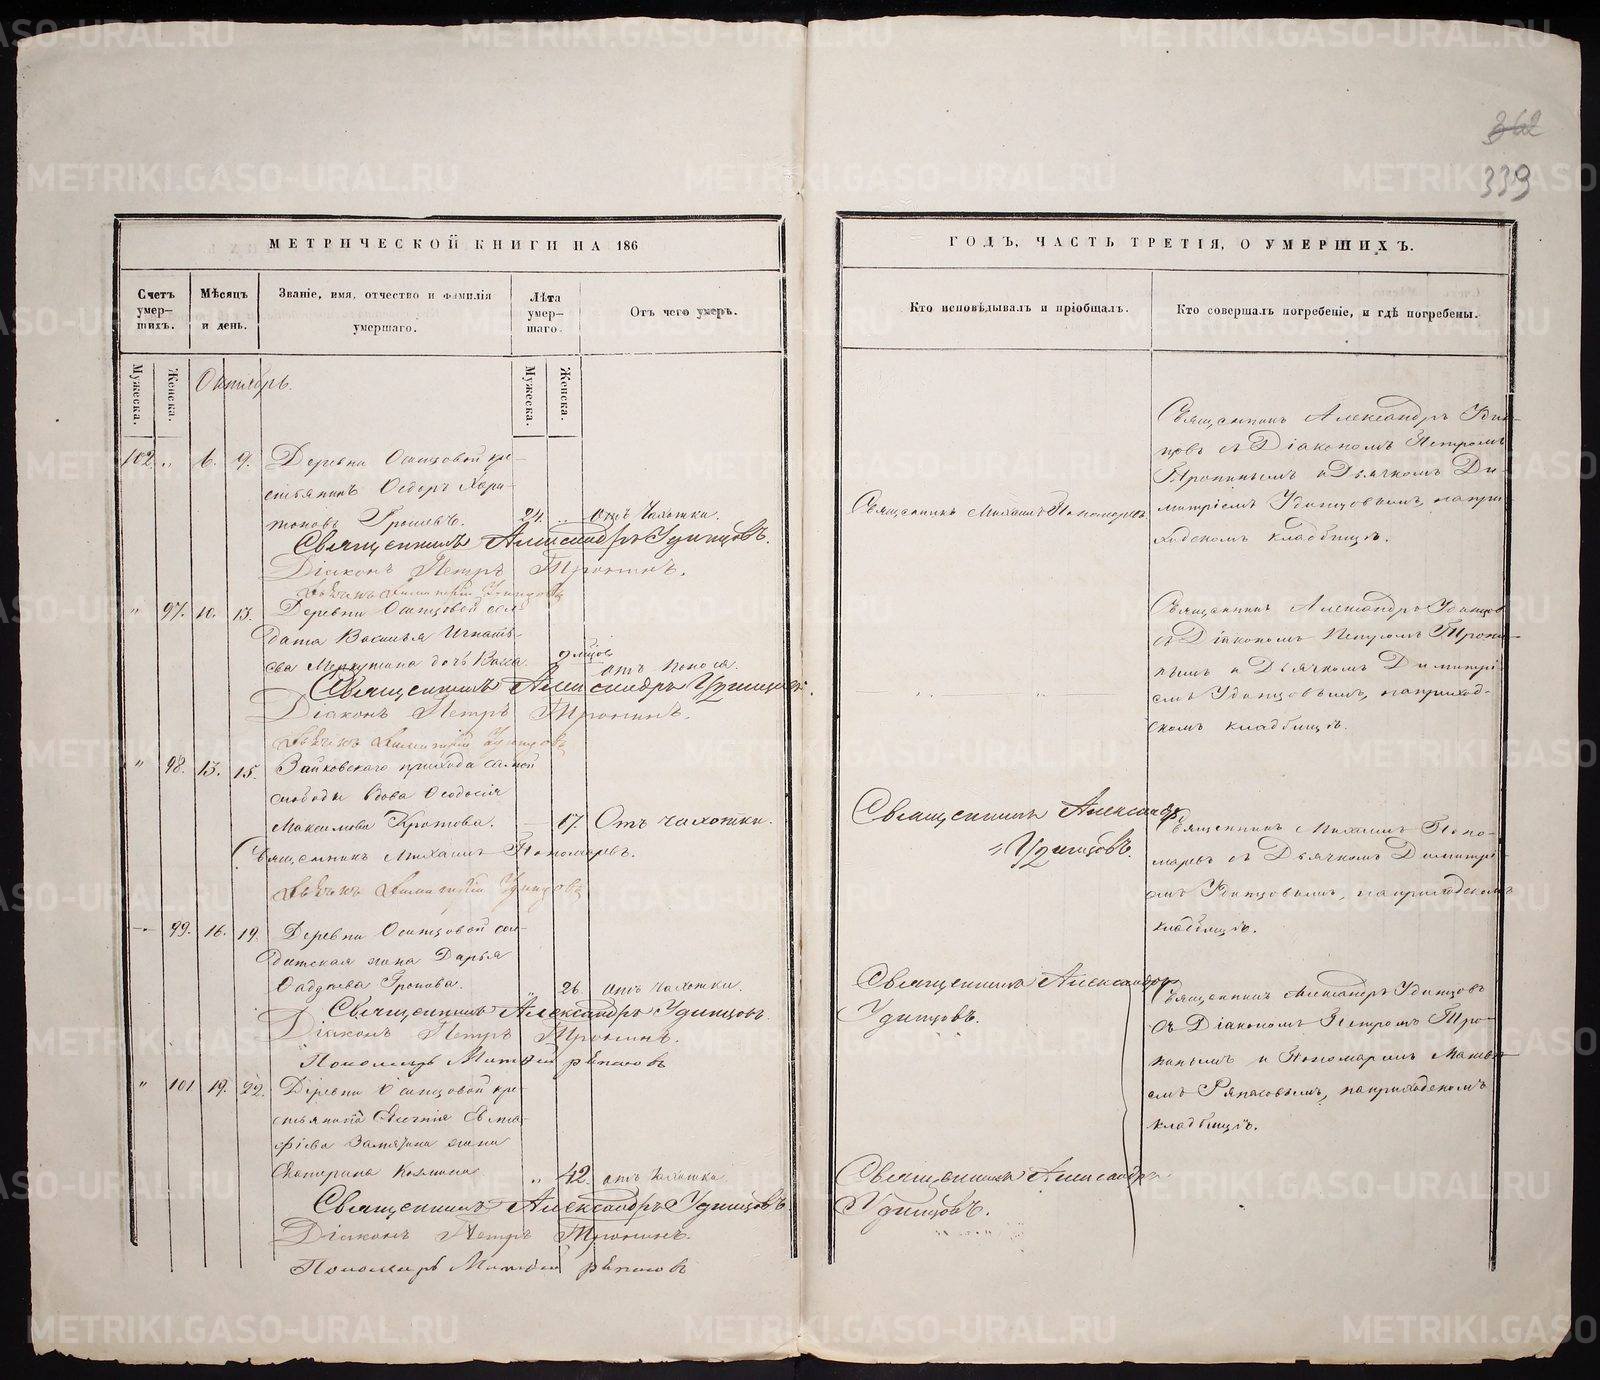 362
339
МЕТРИЧЕСКОЙ КНИГИ НА 186
ГОДЪ, ЧАСТЬ ТРЕТІЯ, О УМЕРШИХЪ.
Счетъ умер-шихъ.
Мѣсяцъ и день.
Званіе, имя, отчество и фамилія умершаго.
Лѣта умер-шаго.
Отъ чего умеръ.
Кто исповѣдывалъ и пріобщалъ.
Кто совершалъ погребеніе, и гдѣ погребены.
Мужеска.
Женска.
Октябрь.
Мужеска.
Женска.
102 " 6. 9. Деревни Осинцовой кре-
стьянинъ Ѳедоръ Хари-
тоновъ 24. " отъ Чахотки.
Священникъ Александръ Удинцовъ.
Діаконъ Петръ Тронинъ.
Дьячекъ Димитрій Удинцовъ
Священникъ Михаилъ Пономаревъ.
Священникъ Александръ Удин-
цовъ съ Діакономъ Петромъ
Тронинымъ и Дьячкомъ Ди-
митріемъ Удинцовымъ, на при-
ходскомъ кладбищѣ.
" 97. 10. 13. Деревни Осинцовой сол-
дата Василья Игнать-
ева Меркушина дочь
отъ поноса.
Священникъ Александръ Удинцовъ.
Діаконъ Петръ Тронинъ.
Дьячекъ Димитрій Удинцовъ
Священникъ Александръ Удинцов
съ Діакономъ Петромъ Трони-
нымъ и Дьячкомъ Димитрі-
емъ Удинцовымъ, на приход-
скомъ кладбищѣ.
" 98. 13. 15. Зайковскаго прихода самой
слободы вдова Ѳеодосія
Максимова Кротова. 17. Отъ чахотки.
Священникъ Михаилъ Пономаревъ.
Дьячекъ Димитрій Удинцовъ
Священникъ Александръ
Удинцовъ.
Священникъ Михаилъ Поно-
маревъ съ Дьячкомъ Димитрі-
емъ Удинцовымъ, на приходскомъ
кладбищѣ.
99. 16. 19. Деревни Осинцовой сол-
датская жена Дарья
" 26. отъ чахотки.
Священникъ Александръ Удинцовъ
Діаконъ Петръ Тронинъ.
Пономарь Матвѣй Ряпасовъ
Священникъ Александръ
Удинцовъ.
Священникъ Александръ Удинцовъ
съ Діакономъ Петромъ Тро-
нинымъ и Пономаремъ Матвѣ-
емъ Ряпасовымъ, на приходскомъ
кладбищѣ.
" 101 19. 22. Деревни Осинцовой кре-
стьянина Евгенія Евста-
фіева жена
Екатерина Козмина " 42. отъ чахотки
Священникъ Александръ Удинцовъ.
Діаконъ Петръ Тронинъ.
Пономарь Матвѣй Ряпасовъ
Священникъ Александръ
Удинцовъ.